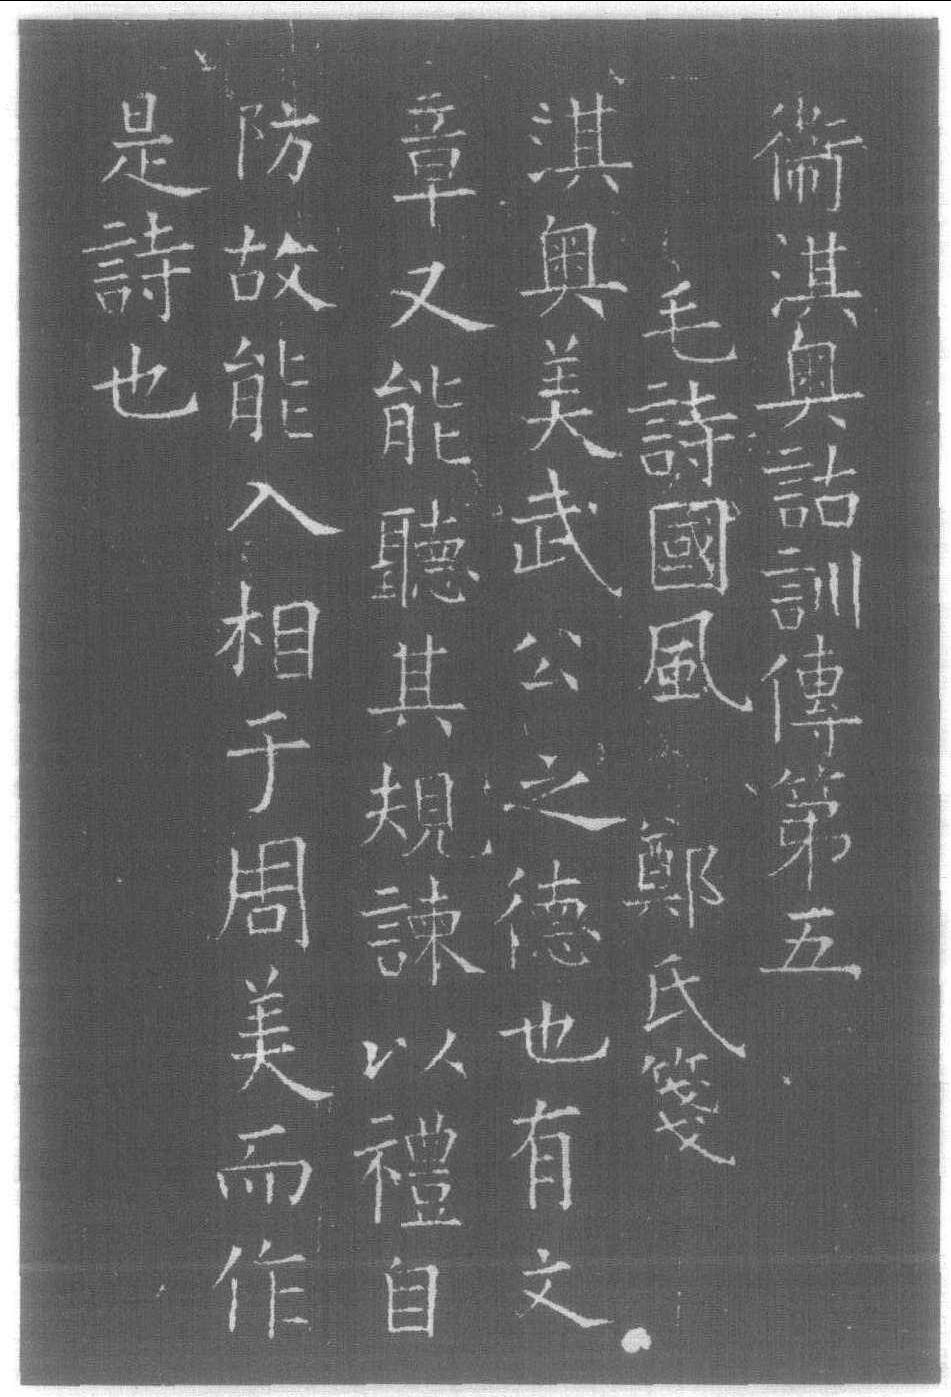 衞淇奥詁訓傳第五
毛詩國風 鄭氏箋
淇奥美武公之德也有文
章又能聽其規諫以禮自
防故能入相于周美而作
是詩也